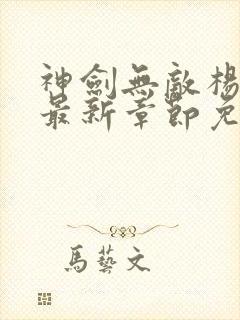 神劍無敵楊
最新章節免
馬藝文